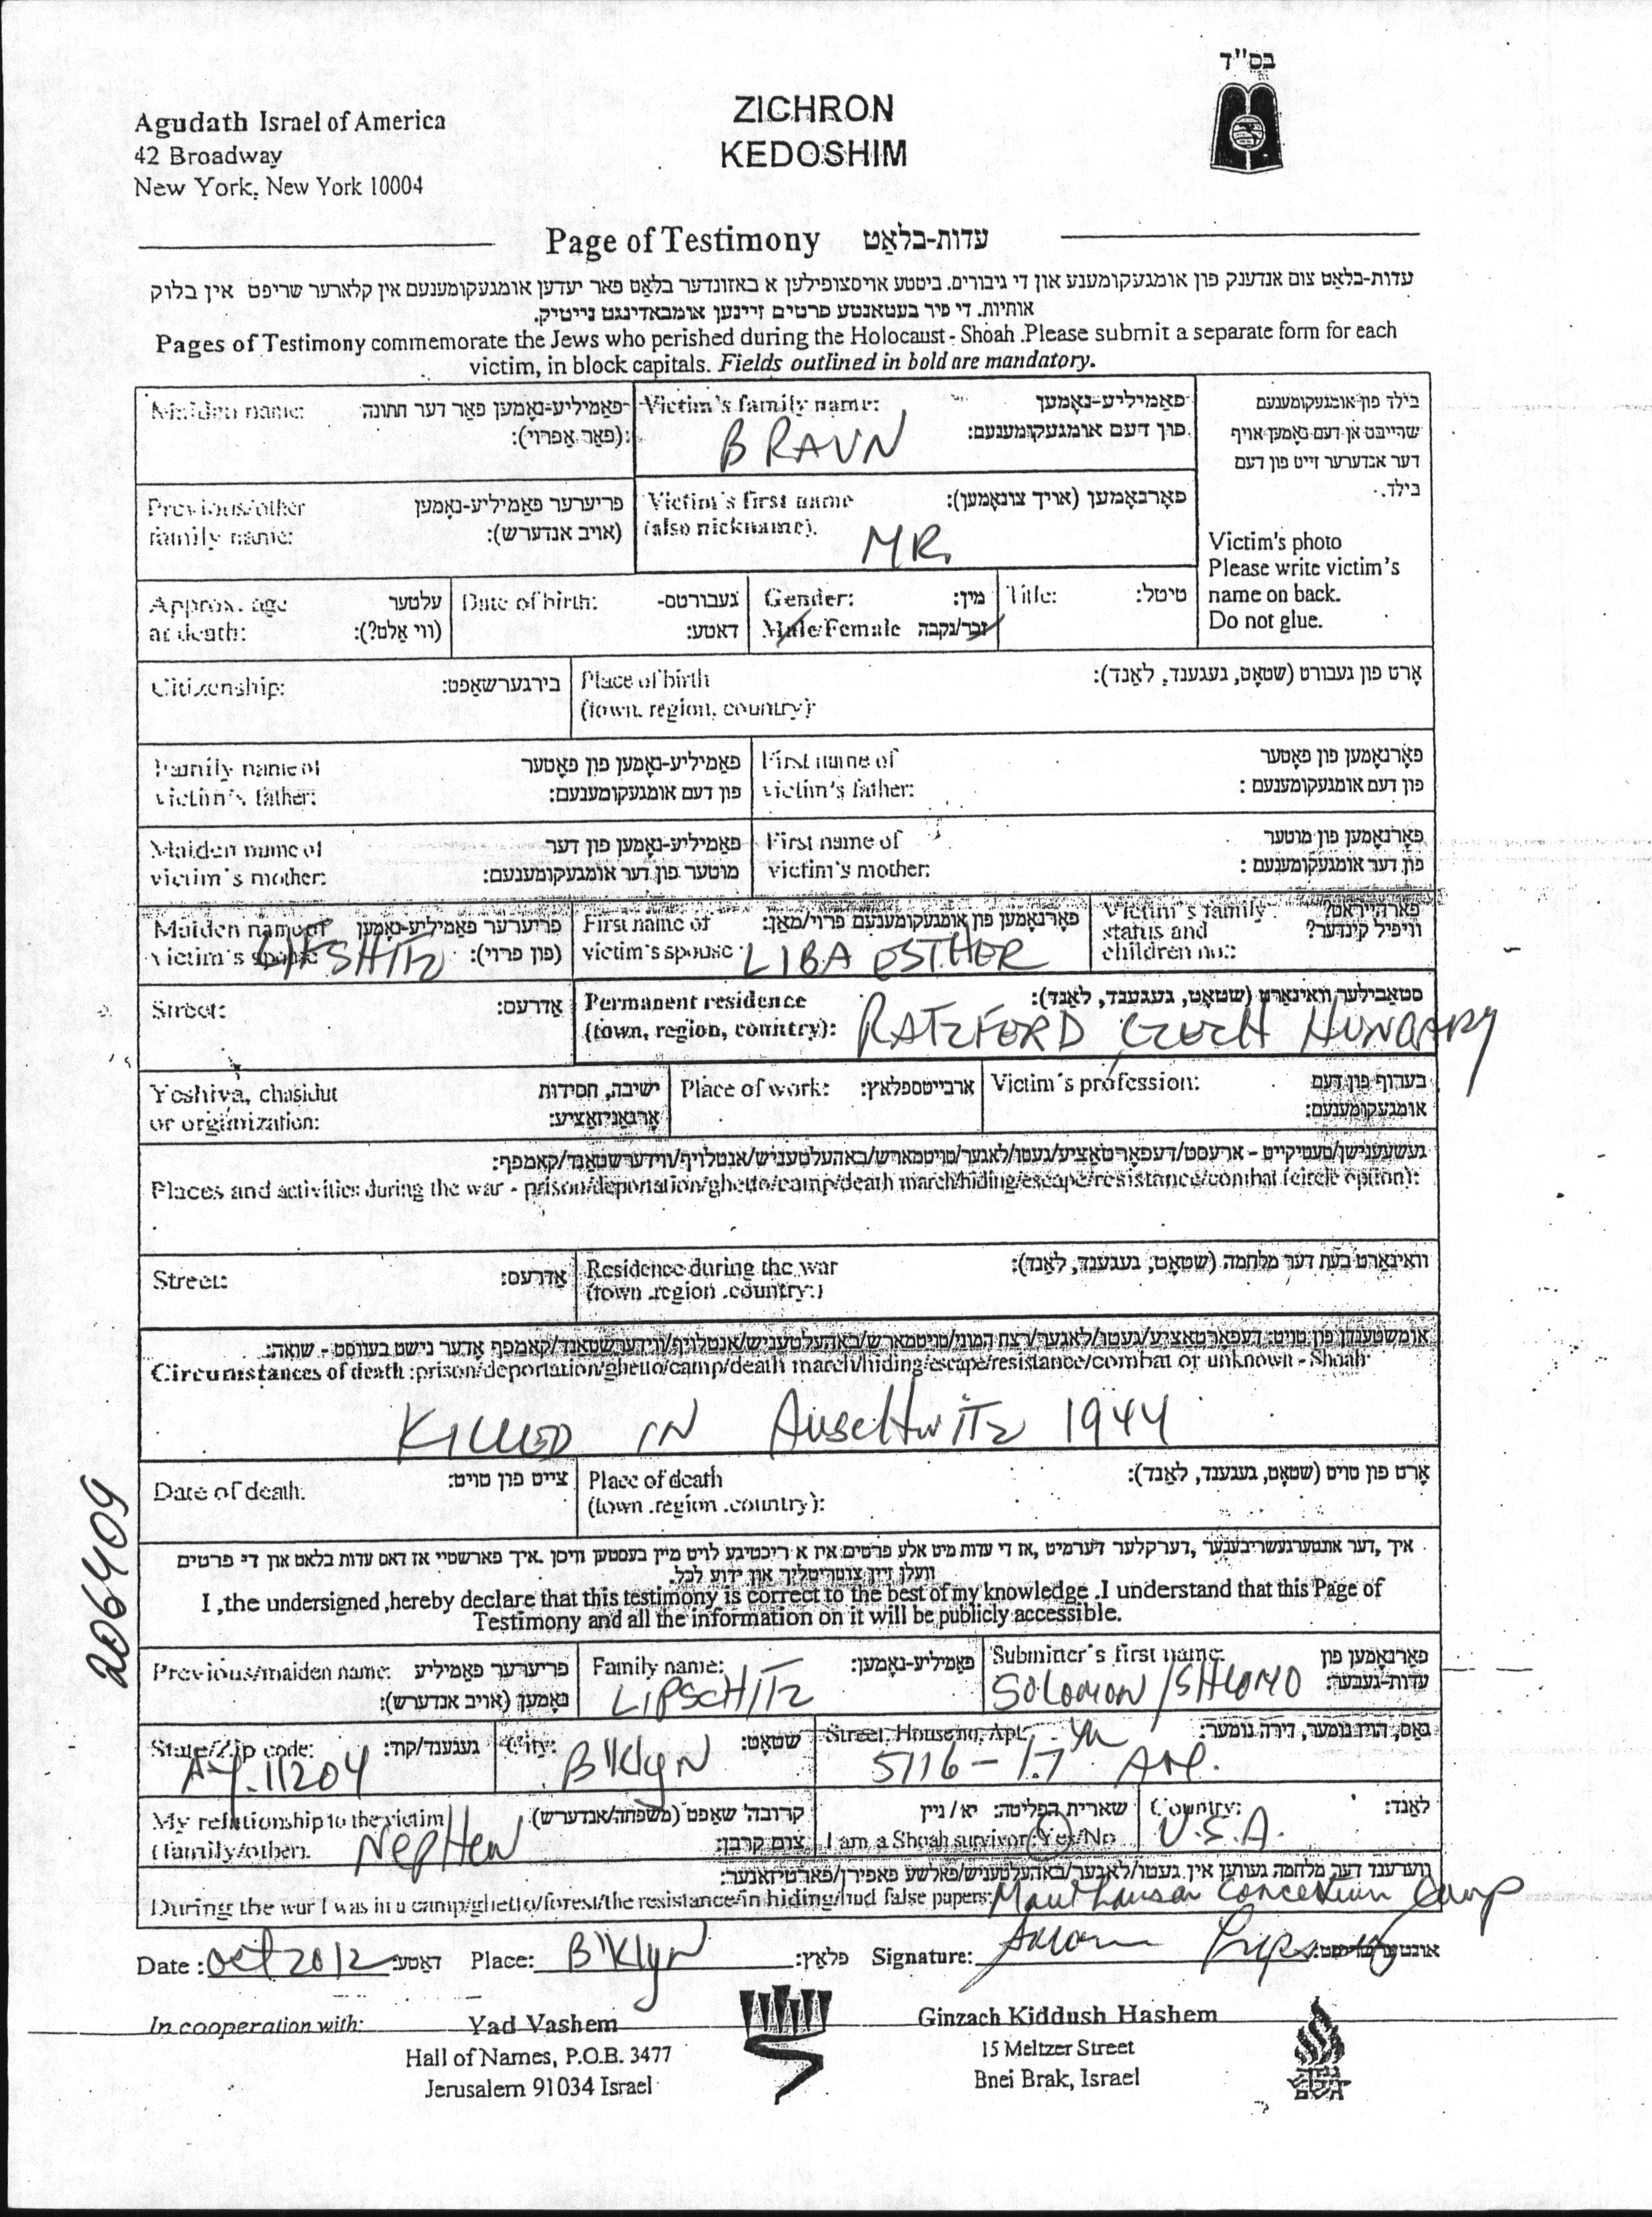 בס"ד
Agudath Israel of America
42 Broadway
New York, New York 10004
ZICHRON
KEDOSHIM
Page of Testimony עדות-בלאַט
עדות-בלאַט צום אנדענק פון אומגעקומענע און די גיבורים. ביטטע אויסצופילען א באזונדער בלאַט פאר יעדען אומגעקומענעם אין קלארער שריפט אין בלוק
אותיות. די פיר בעטאנטע פרטים זיינען אומבאדינגט נייטיק.
Pages of Testimony commemorate the Jews who perished during the Holocaust - Shoah .Please submit a separate form for each
victim, in block capitals. Fields outlined in bold are mandatory.
Maiden name: פאַמיליע-נאָמען פאַר דער חתונה
(פאַר אַפרוי):
Victim's family name: פאַמיליע-נאָמען
פון דעם אומגעקומענעם:
BRAUN
בילד פון אומגעקומענעם
שרייבט אן דעם נאָמען אויף
דער אנדערער זייט פון דעם
בילד.
Previous/other פריערער פאַמיליע-נאָמען
family name: (אויב אנדערש):
Victim's first name פאָרנאָמען (אויך צונאָמען):
(also nickname).
MR.
Victim's photo
Please write victim's
name on back.
Do not glue.
Approx. age עלטער
at death: (ווי אַלט?):
Date of birth: געבורטס-
דאַטע:
Gender: מין:
Male/Female זכר/נקבה
Title: טיטל:
Citizenship: בירגערשאַפט:
Place of birth אָרט פון געבורט (שטאָט, געגענד, לאַנד):
(town, region, country):
Family name of פאַמיליע-נאָמען פון פאָטער
victim's father: פון דעם אומגעקומענעם:
First name of פאָרנאָמען פון פאָטער
victim's father: פון דעם אומגעקומענעם :
Maiden name of פאַמיליע-נאָמען פון דער
victim's mother: מוטער פון דער אומגעקומענעם:
First name of פאָרנאָמען פון מוטער
victim's mother: פון דער אומגעקומענעם :
Maiden name of פריערער פאַמיליע-נאָמען
victim's spouse (פון פרוי):
LIFSHITZ
First name of פאָרנאָמען פון אומגעקומענעם פרוי/מאַן:
victim's spouse LIBA ESTHER
Victim's family פארהייראט?
status and וויפיל קינדער?
children no.:
Street: אַדרעס:
Permanent residence סטאַבילער וואוינארט (שטאָט, געגענד, לאַנד):
(town, region, country): RATZFERD CZECH HUNGARY
Yeshiva, chasidut ישיבה, חסידות
or organization: אָרגאַניזאַציע:
Place of work: ארבייטספלאַץ:
Victim's profession: בערוף פון דעם
אומגעקומענעם:
געשעענישן/טעטיקייט - ארעסט/דעפּאָרטאַציע/געטו/לאַגער/טויטמארש/באהעלטעניש/אנטלויף/ווידערשטאַנד/קאמפּף:
Places and activities during the war - prison/deportation/ghetto/camp/death march/hiding/escape/resistance/combat (circle option):
Street: אַדרעס:
Residence during the war וואוינארט בעת דער מלחמה (שטאָט, געגענד, לאַנד):
(town .region .country:)
אומשטענדן פון טויט: דעפּאָרטאַציע/געטו/לאַגער/רצח המוני/טויטמארש/באהעלטעניש/אנטלויף/ווידערשטאַנד/קאמפּף אָדער נישט בעוווסט - שואה:
Circumstances of death :prison/deportation/ghetto/camp/death march/hiding/escape/resistance/combat or unknown - Shoah
KILLED IN Auschwitz 1944
Date of death: צייט פון טויט:
Place of death אָרט פון טויט (שטאָט, געגענד, לאַנד):
(town .region .country):
206409
איך, דער אונטערגעשריבענער, דערקלער דערמיט, אז די עדות מיט אלע פרטים איז א ריכטיגע לויט מיין בעסטען וויסן. איך פארשטיי אז דאס עדות בלאט און די פרטים
וועלן זיין צוטריטליך און ידוע לכל.
I ,the undersigned ,hereby declare that this testimony is correct to the best of my knowledge .I understand that this Page of
Testimony and all the information on it will be publicly accessible.
Previous/maiden name: פריערער פאַמיליע
נאָמען (אויב אנדערש):
Family name: פאַמיליע-נאָמען:
LIPSCHITZ
Submitter's first name: פאָרנאָמען פון
עדות-געבער:
SOLOMON/SHLOMO
State/Zip code: געגענד/קוד:
N.Y. 11204
City: שטאָט:
B'klyN
Street, House no, Apt. גאַס, הויז נומער, דירה נומער:
5716 - 17 th Ave.
My relationship to the victim קרובה' שאַפט (משפחה/אנדערש)
(family/other). צום קרבן:
NepHew
שארית הפליטה: יא / ניין
I am a Shoah survivor: Yes/No
Country: לאַנד:
U.S.A.
ווערענד דער מלחמה געווען אין געטו/לאַגער/באהעלטעניש/פאלשע פאפירן/פארטיזאנער:
During the war I was in a camp/ghetto/forest/the resistance/in hiding/had false papers: Mauthausen Concentration Camp
Date : Oct 2012 דאַטע: Place: B'klyN פלאַץ: Signature:
In cooperation with:
Yad Vashem
Hall of Names, P.O.B. 3477
Jerusalem 91034 Israel
Ginzach Kiddush Hashem
15 Meltzer Street
Bnei Brak, Israel